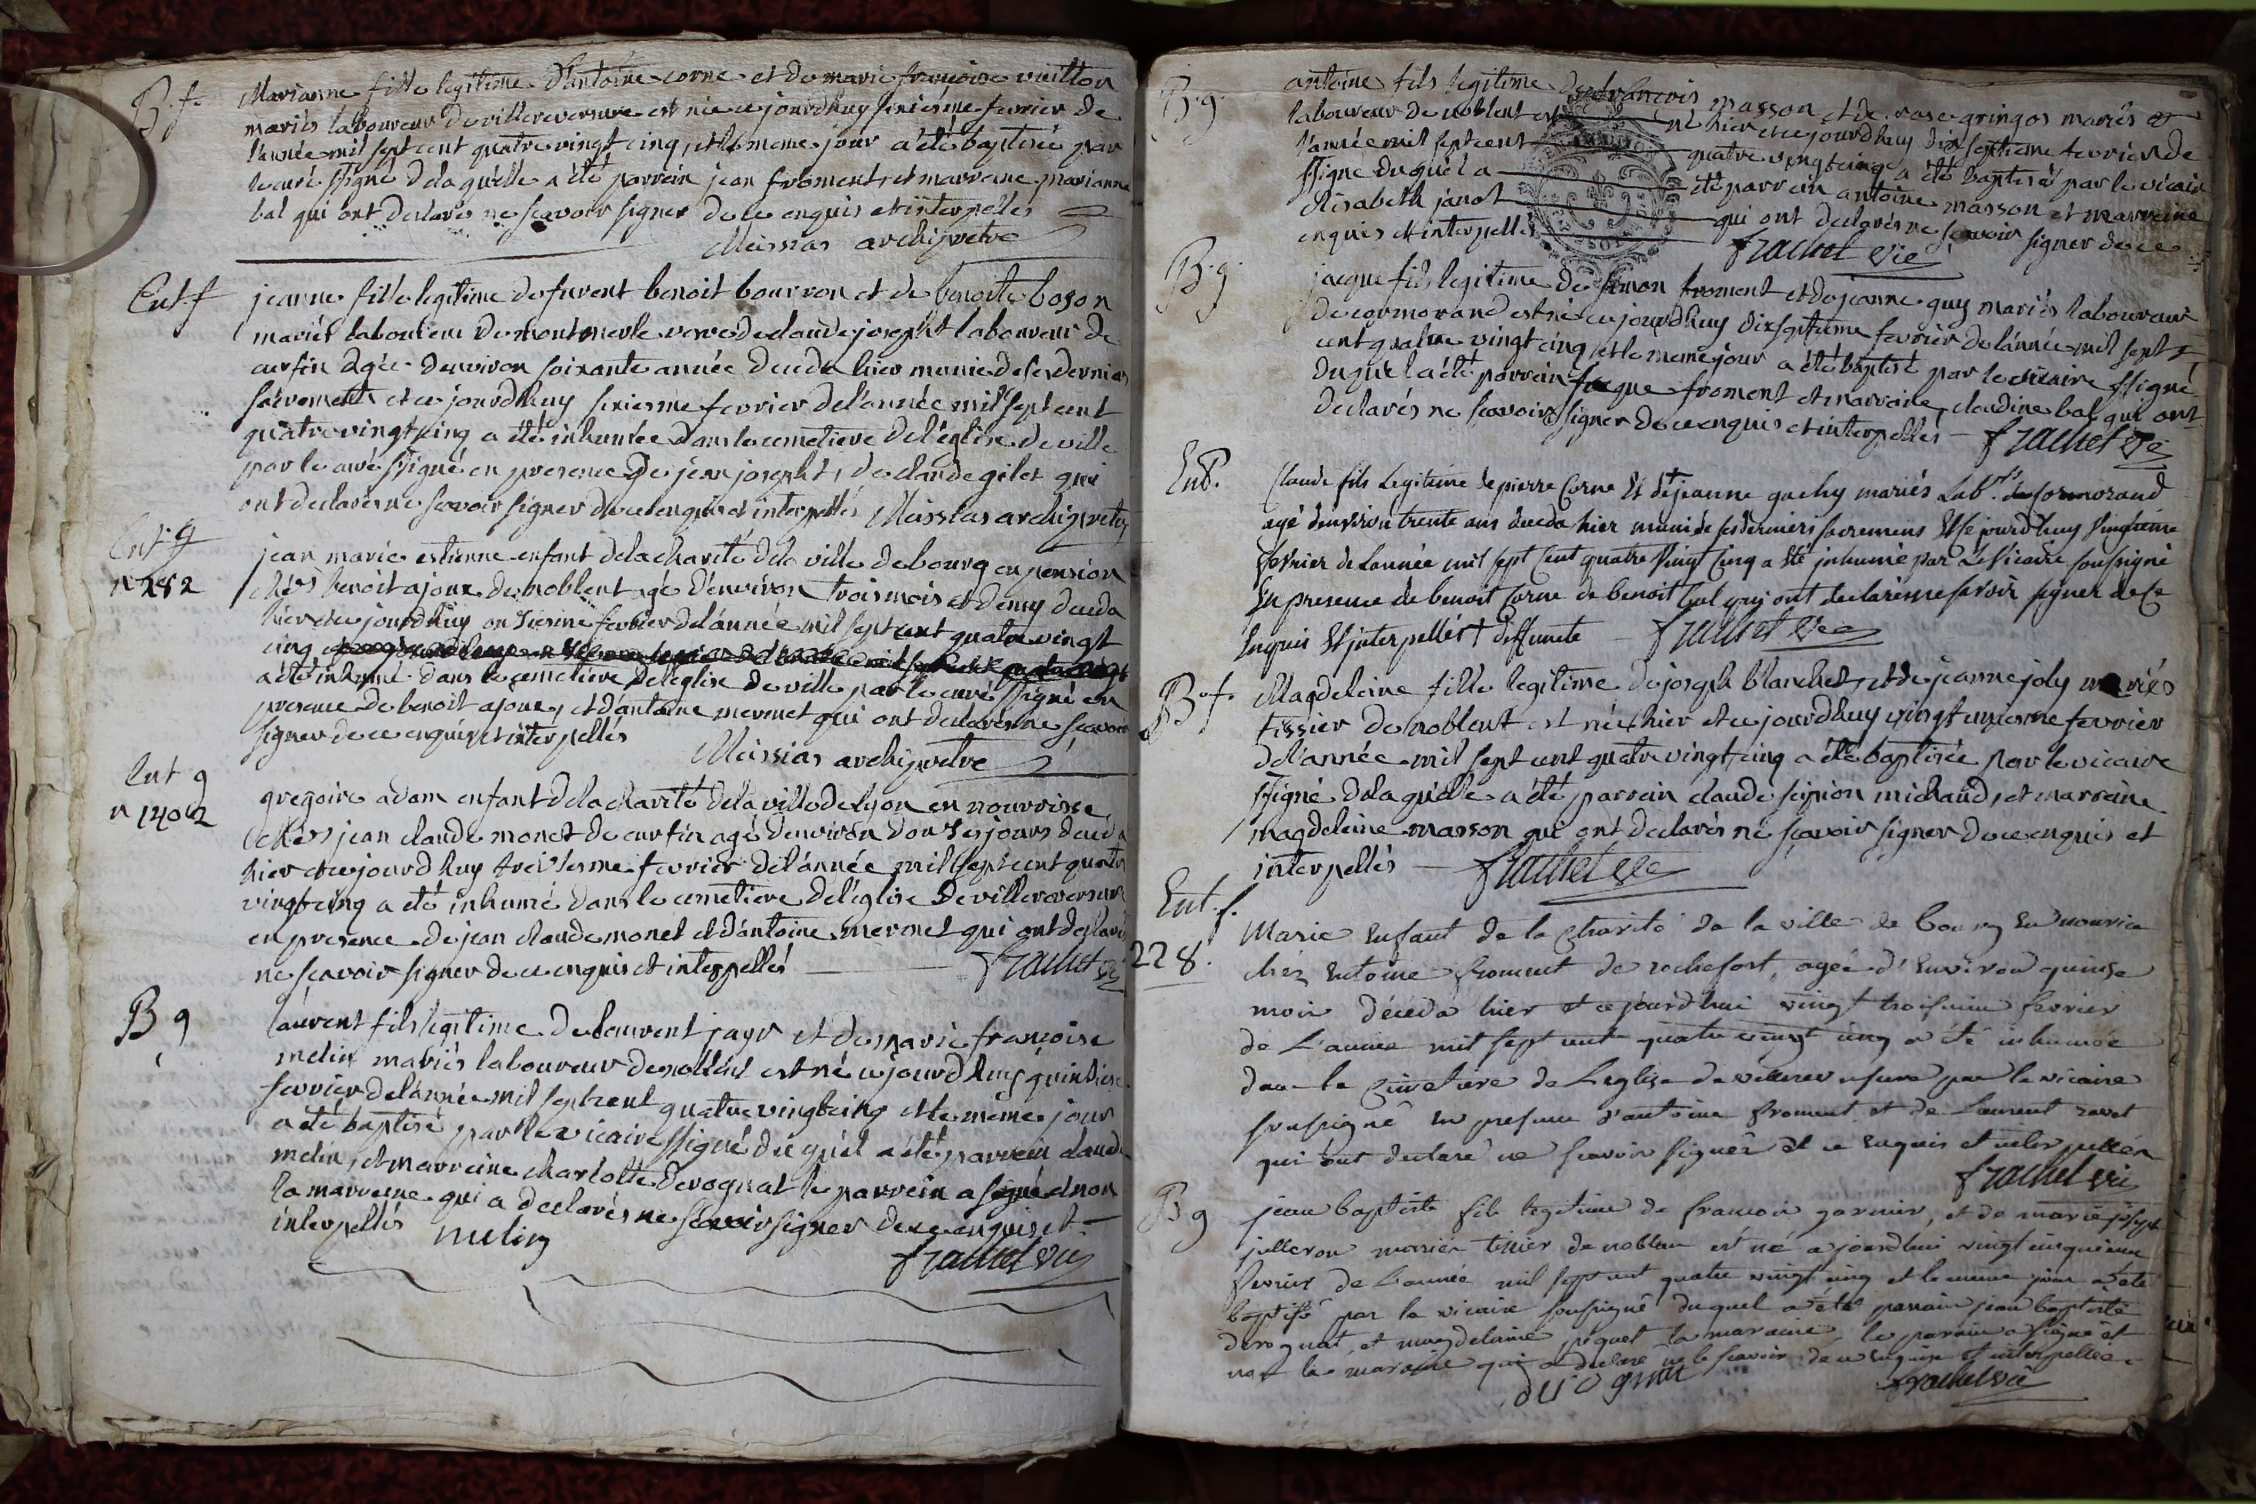 B. f.
Marianne fille legitime d'antoine corne et de marie françoise vuitton
mariés laboureur de villereversure est née ce jourdhuy sixiésme fevrier de
l'année mil sept cent quatre vingt cinq, et le meme jour a été baptisée par
le curé ssigné de laquelle a été parrain jean froment, et marraine marianne
bal qui ont declarés ne scavoir signer de ce enquis et interpellés
Meissias archipretre
Ent. f
jeanne fille legitime de furent benoit bourron et de benoite boson
mariés laboureur de montmerle veuve de claude josepht laboureur de
curfin agée denviron soixante année deceda hier munie de ses derniers
sacrements et ce jourdhuy sixiesme fevrier de l'année mil sept cent
quatre vingt cinq a été inhumée dans le cemetiere de l'église de ville
par le curé ssigné en presence de jean josepht, de claude gilet qui
ont declarés ne scavoir signer de ce enquis et interpellés Meissias archipretre
Ent. g
n 282
jean marie estienne enfant de la charité de la ville de bourg en pension
chés benoit ajoux de noblent agé d'environ trois mois et demy deceda
hier et ce jourdhuy onzieme fevrier de l'année mil sept cent quatre vingt
cinq
a été inhumé dans le cemetiere de l'eglise de ville par le curé ssigné en
presence de benoit ajoux, et d'antoine mermet qui ont declarés ne scavoir
signer de ce enquis et interpellés
Meissias archipretre
Ent g
n 1402
gregoire adam enfant de la charité de la ville de lyon en nourrisse
chés jean claude monet de curfin agé d'environ douze jours deceda
hier et ce jourdhuy treiziesme fevrier de l'année mil sept cent quatre
vingt cinq a été inhumé dans le cemetiere de l'église de villereversure
en presence de jean claude monet et d'antoine mermet qui ont declarés
ne scavoir signer de ce enquis et interpellés frachet vic
B g
laurent fils legitime de laurent jayr et de marie françoise
melin mariés laboureur de noblent est né ce jourdhuy quinzieme
fevrier de l'année mil sept cent quatre vingt cinq et le meme jour
a été baptisé par le vicaire ssigné du quel a été parrain claude
melin, et marreine charlotte derognat le parrein a signé et non
la marreine qui a declarés ne scavoir signer de ce enquis et
interpellés melin
frachet vic
B. g.
antoine fils legitime de francois masson et de rose gringos mariés
laboureur de noblent est né hier et ce jourdhuy dix septieme fevrier de
l'année mil sept cent quatre vingt cinq a été baptisé par le vicaire
ssigné du quel a été parrain antoine masson et marreine
elisabeth janot qui ont declarés ne scavoir signer de ce
enquis et interpellés frachet vic
B. g.
jacque fils legitime de simon froment et de jeanne guy mariés laboureur
de cormorand est né ce jourdhuy dix septieme fevrier de l'année mil sept
cent quatre vingt cinq, et le meme jour a été baptisé par le vicaire ssigné
du quel a été parrein jacque froment et marraine claudine bal qui ont
declarés ne scavoir signer de ce enquis et interpellés – frachet vic
Ent.
Claude fils Legitime de pierre Corne Et de + jeanne gachy mariés Lab.rs de Cormorand
agé d'environ trente ans deceda hier muni de ses derniers sacremens Et Ce jourdhuy Vingtieme
fevrier de Lannée mil sept Cent quatre Vingt Cinq a Eté inhumé par Le Vicaire soussigné
En presence de benoit Corne de benoit bal qui ont declaré ne savoir signer de Ce
Enquis Et interpellés + deffunte – frachet vic
B. f.
Magdeleine fille legitime de joseph blanchet, et de jeanne joly mariés
tissier de noblent est née hier et ce jourdhuy vingt unieme fevrier
de l'année mil sept cent quatre vingt cinq a été baptisée par le vicaire
ssigné de laquelle a été parrain claude scipion michaud, et marreine
magdeleine masson qui ont declarés ne scavoir signer de ce enquis et
interpellés – frachet vic
Ent. f.
228.
Marie Enfant de la Charité de la ville de bourg En nourice
chéz Entoine froment de rochefort, agée d'Environ quinze
mois décéda hier et ce jourdhui vingt troisieme fevrier
de L'année mil sept cent quatre vingt cinq a été inhumée
dans le Cimetiere de L'eglise de villereversure par le vicaire
soussigné En presence d'antoine froment et de Laurent ravet
qui ont declaré ne scavoir signer de ce Enquis et interpellés
frachet vic
B g
jean baptiste fils legitime de francois garnier, et de marie joseph
julleron mariés tissier de noblent est né ajourdhui vingt cinquieme
fevrier de L'année mil sept cent quatre vingt cinq et le meme jour a été
baptisé par le vicaire soussigné duquel a été parrain jean baptiste
derognat, et magdelaine piquet la maraine, le parain a signé et
non la maraine qui a declaré ne le scavoir de ce enquise et interpellée.
derognat
frachet vic